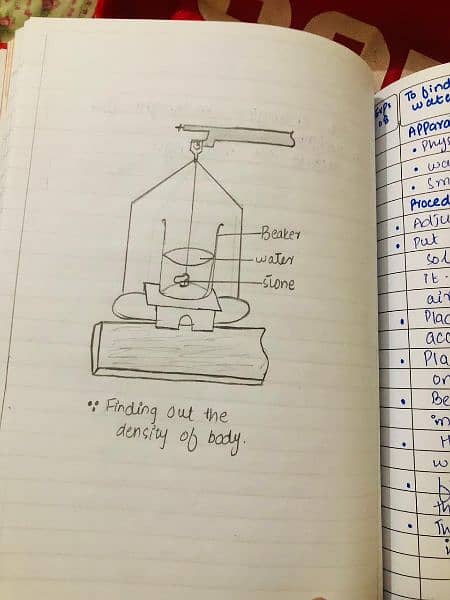 Beaker
water
stone
Finding out the
density of body.
Exp:
08
To find
wate
Appara
• Phys
• wa
• Sm
Proced
• Adju
• Put
sol
it.
air
• Plac
acc
• Pla
on
• Be
im
• H
w
th
• Th